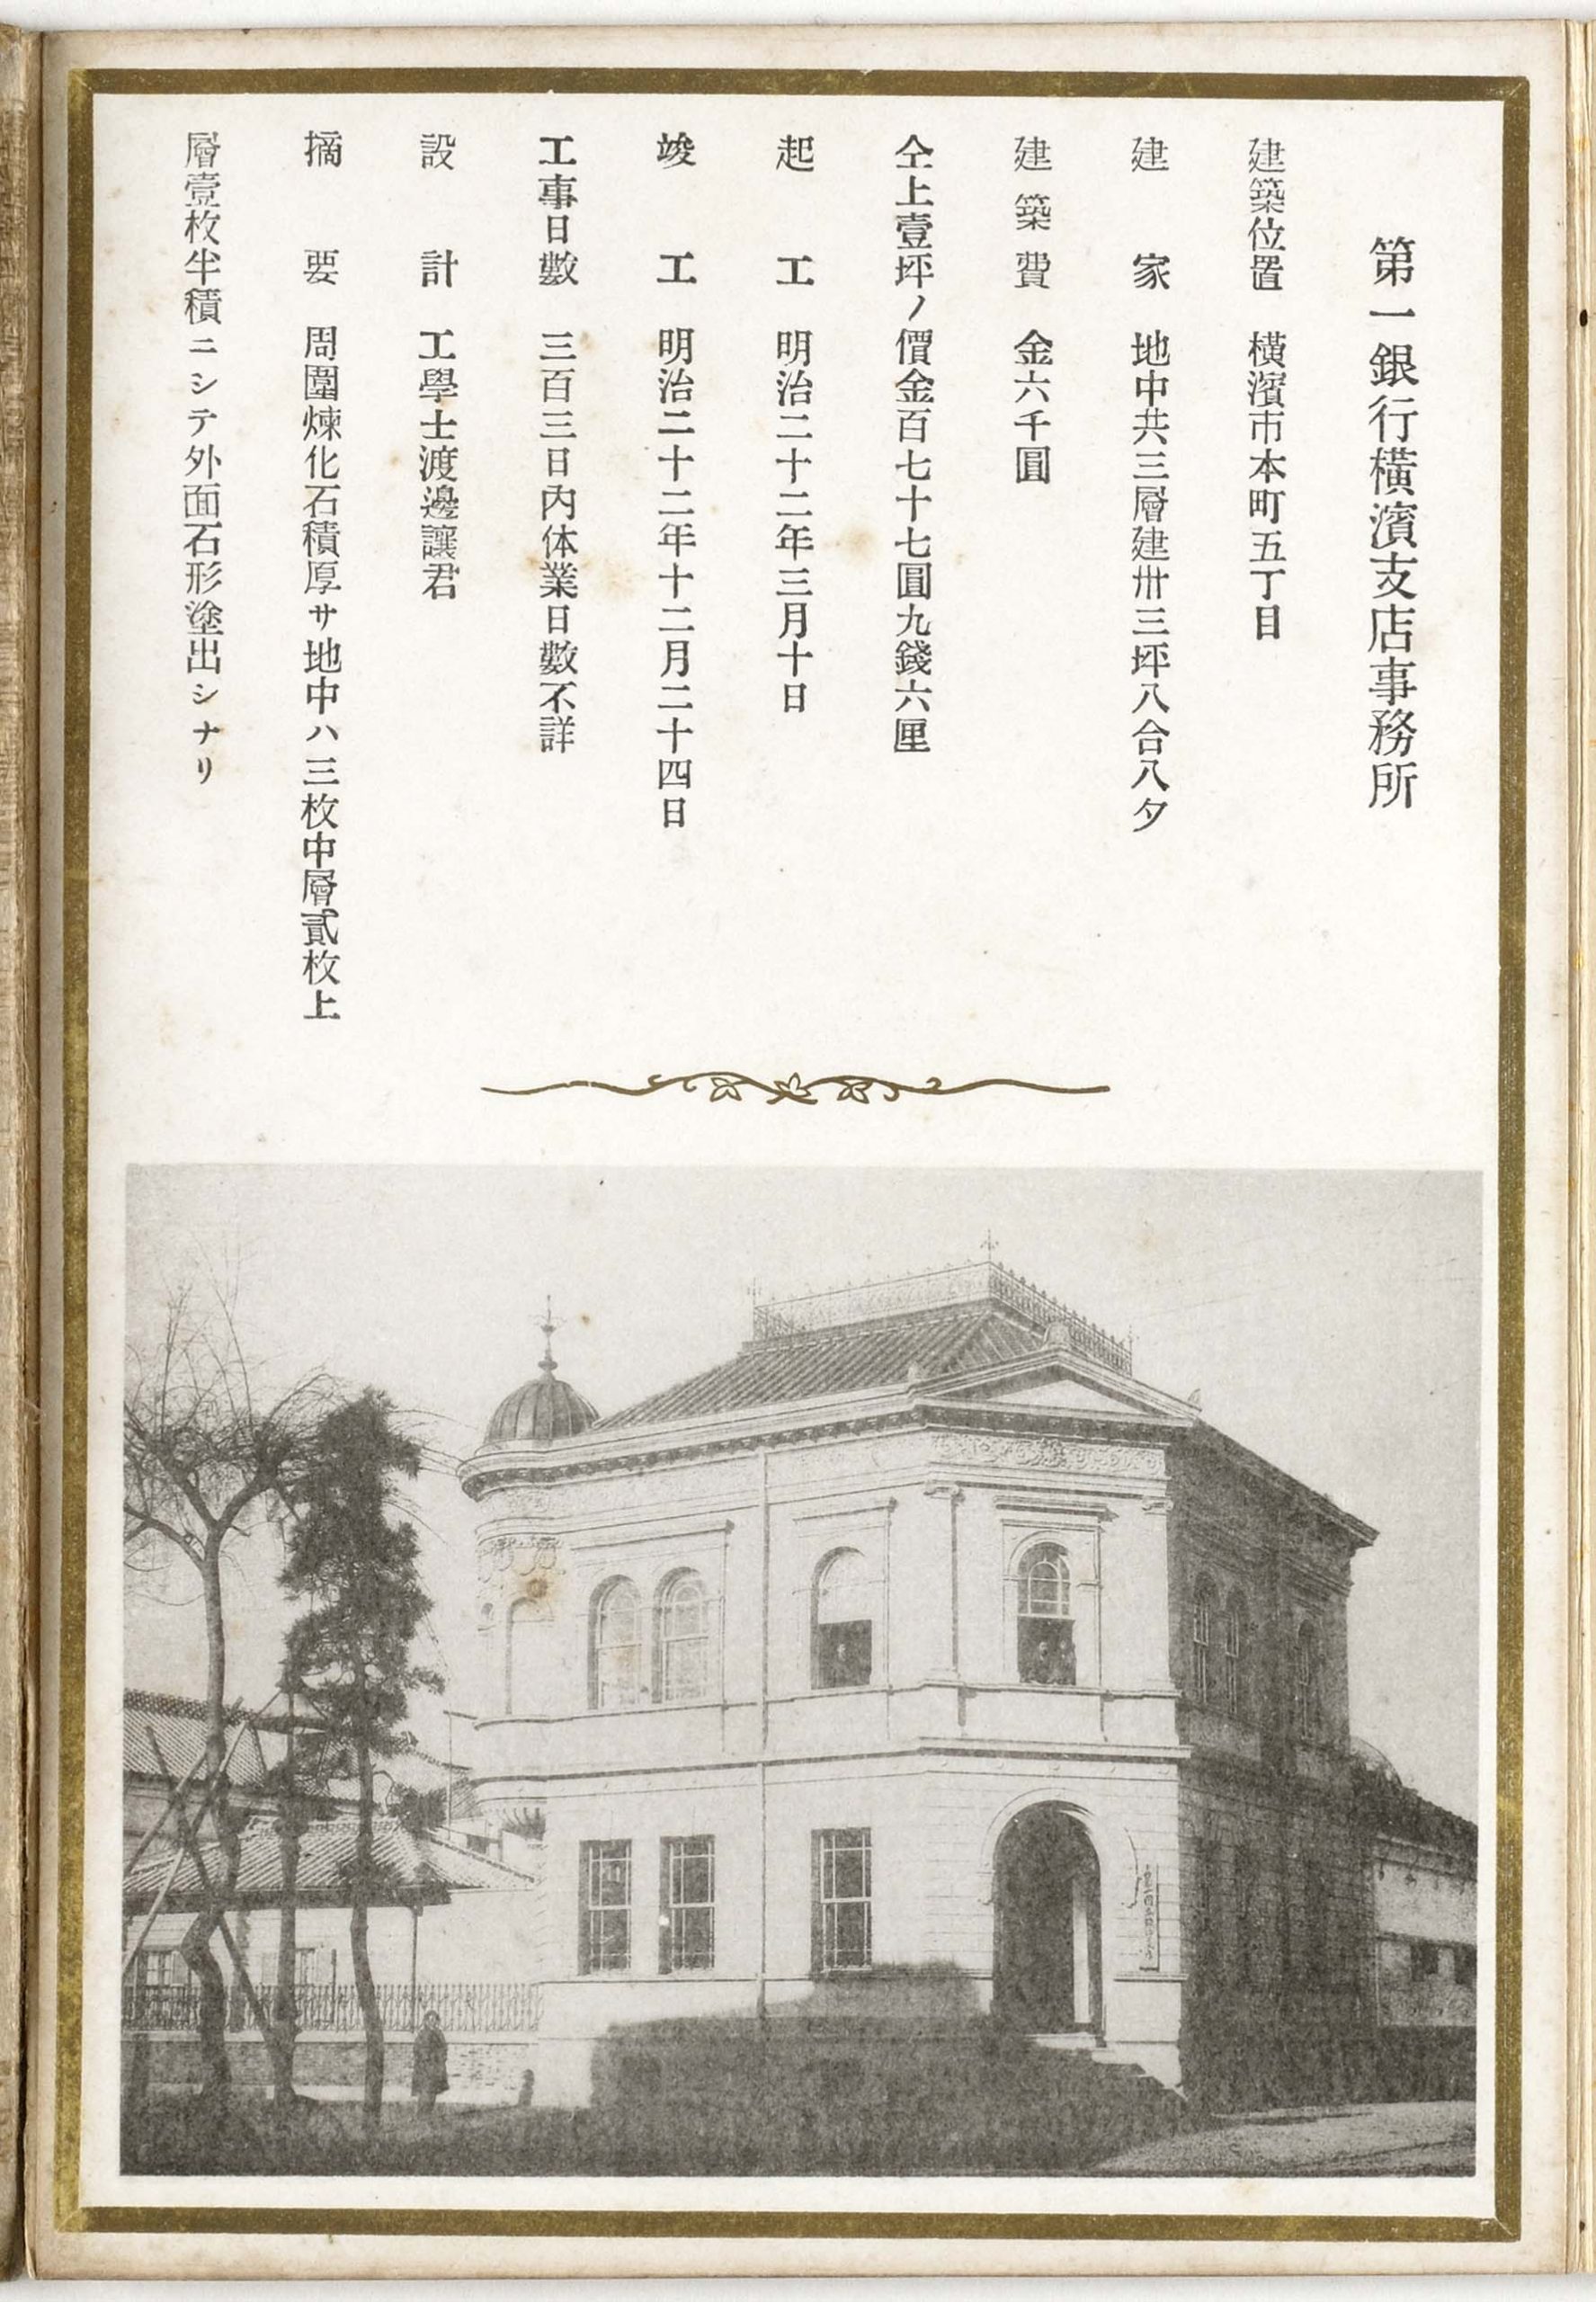 第一銀行橫濱支店事務所
建築位置 橫濱市本町五丁目
建家 地中共三層建卅三坪八合八夕
建築費 金六千圓
仝上壹坪ノ價金百七十七圓九錢六厘
起工 明治二十二年三月十日
竣工 明治二十二年十二月二十四日
工事日數 三百三日內休業日數不詳
設計 工學士渡邊讓君
摘要 周圍煉化石積厚サ地中ハ三枚中層貳枚上
層壹枚半積ニシテ外面石形塗出シナリ